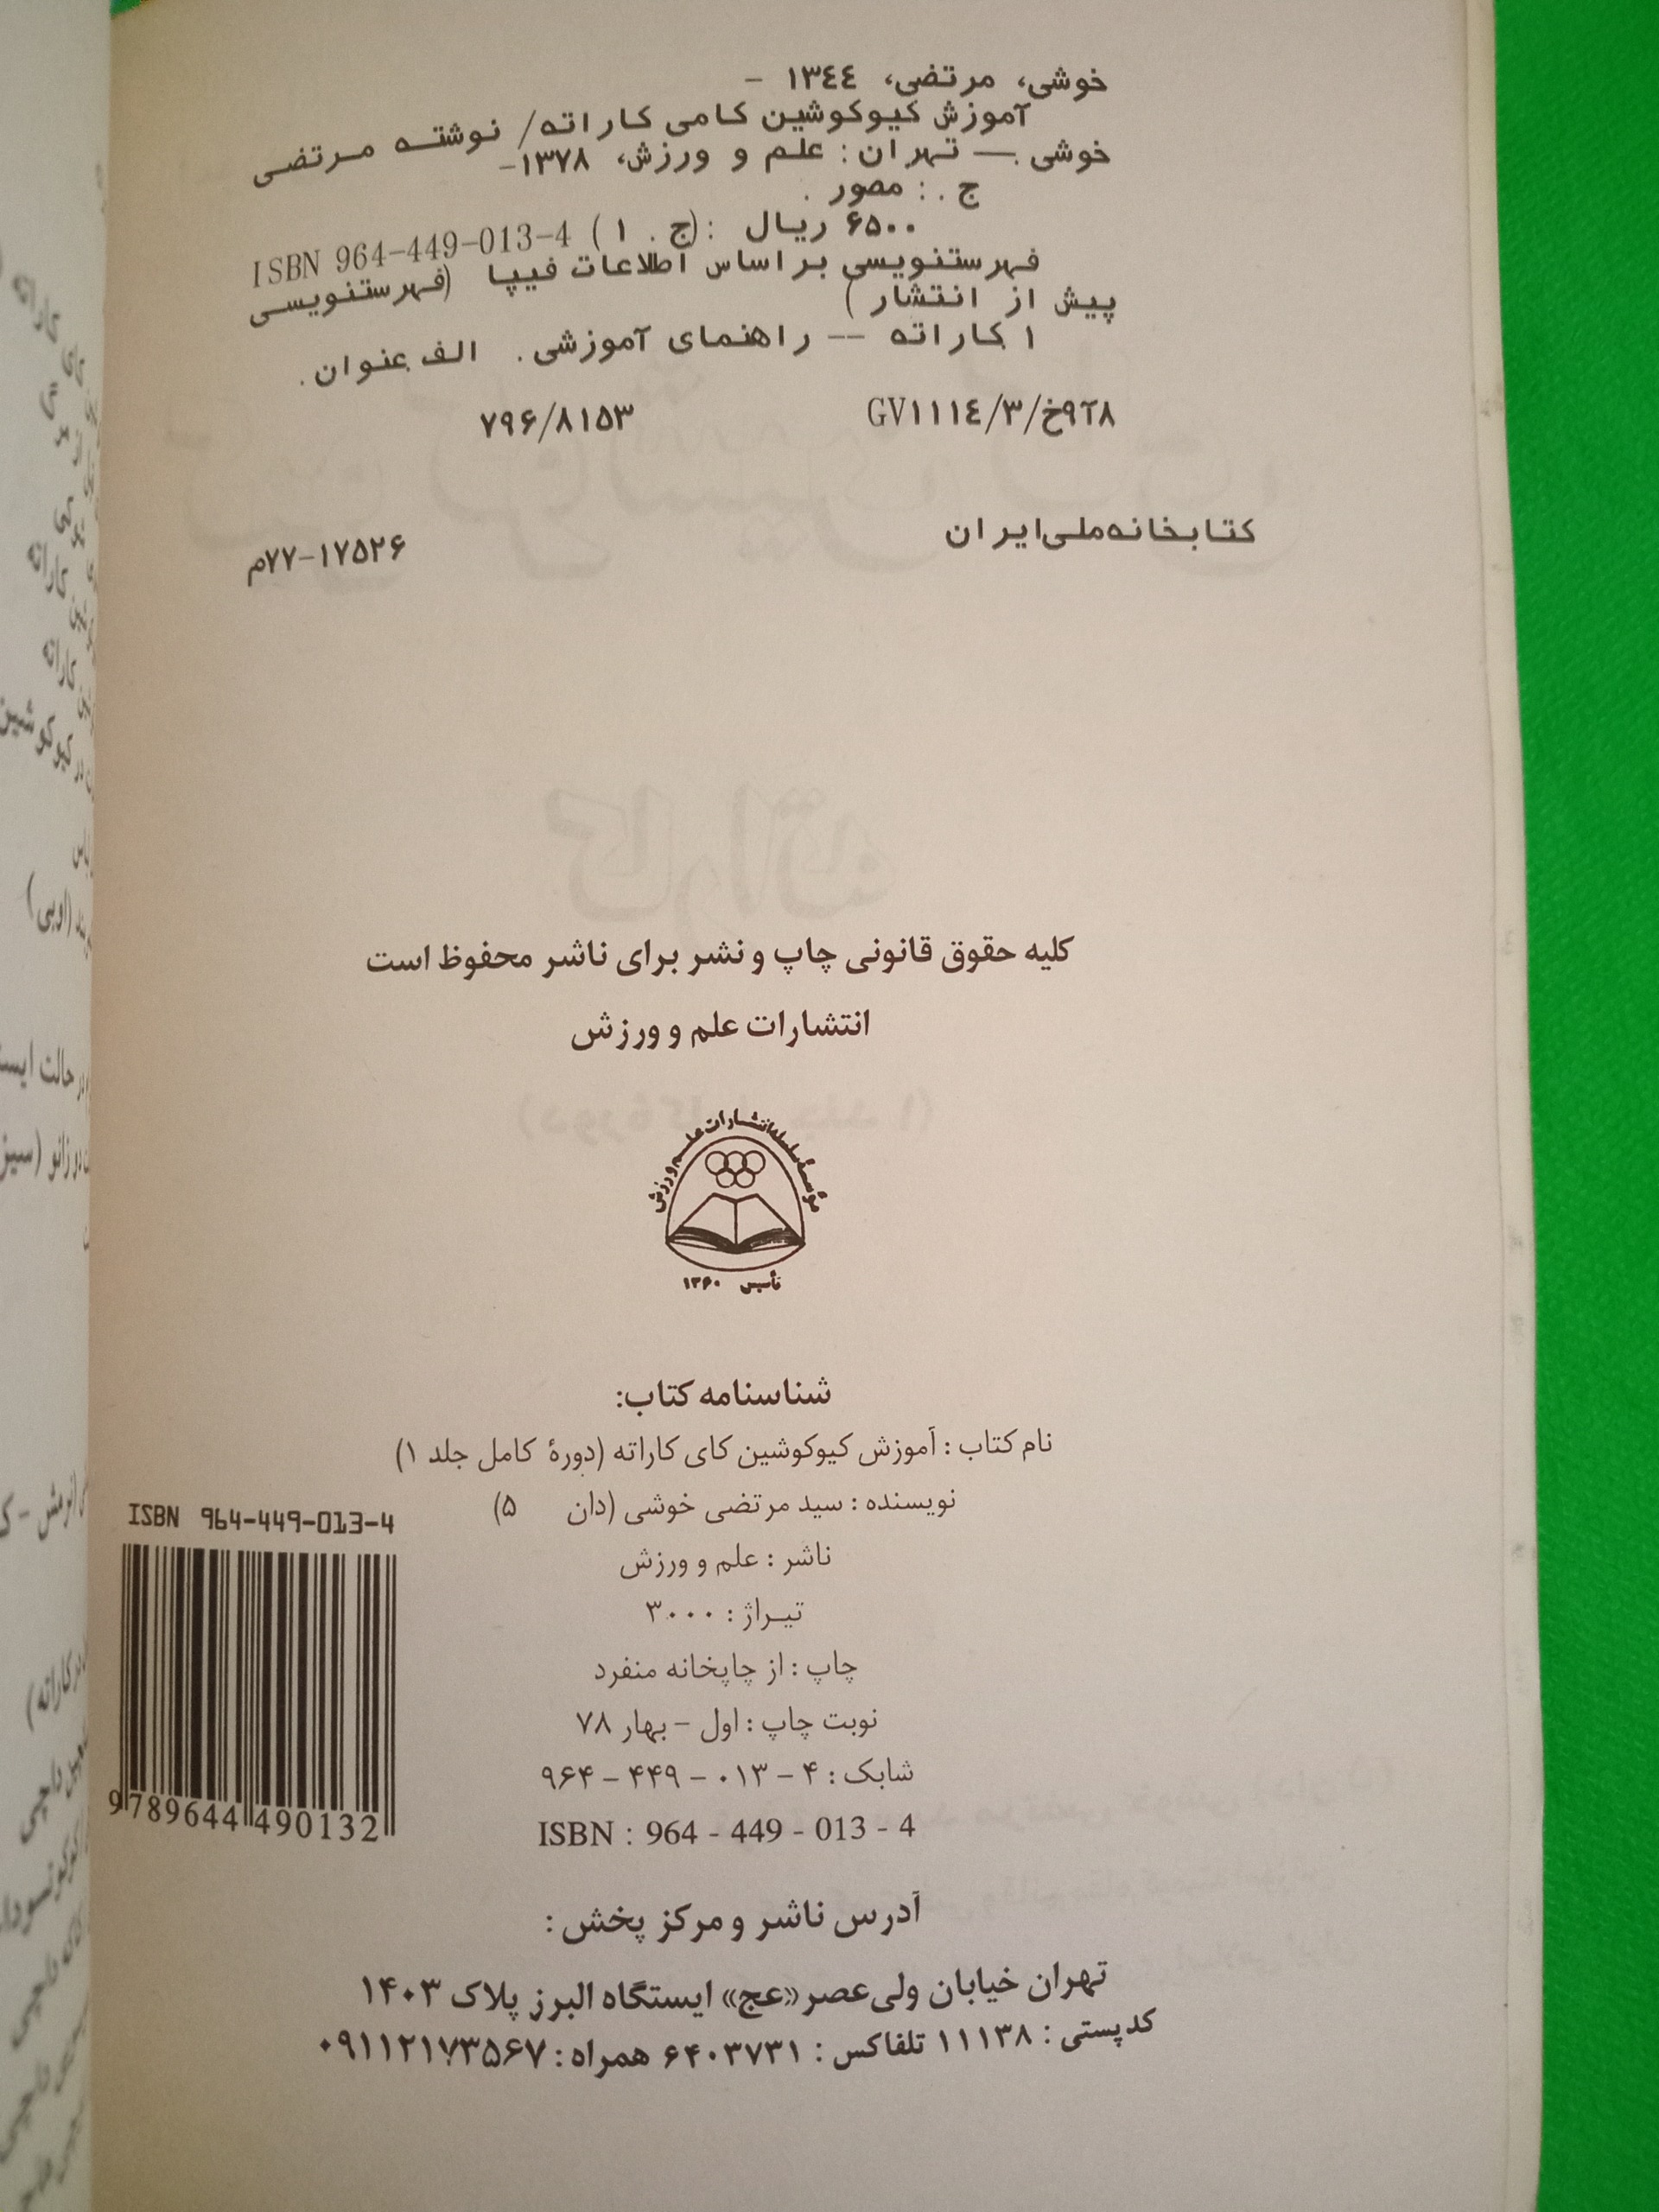 خوشی، مرتضی، ۱۳۴۴ -
آموزش کیوکوشین کامی کاراته/ نوشته مرتضی
خوشی .— تهران: علم و ورزش، ۱۳۷۸-
ج . : مصور .
ISBN 964-449-013-4 ( ۱ . ج): ۶۵۰۰ ریال
فهرستنویسی براساس اطلاعات فیپا (فهرستنویسی
پیش از انتشار )
۱ کاراته -- راهنمای آموزشی . الف عنوان .
GV۱۱۱۴/۳/خ۹آ۸
۷۹۶/۸۱۵۳
کتابخانه‌ملی‌ایران
م۷۷-۱۷۵۲۶
کلیه حقوق قانونی چاپ و نشر برای ناشر محفوظ است
انتشارات علم و ورزش
مؤسسهٔ سلسله انتشارات علم و ورزش
تأسیس ۱۳۶۰
شناسنامه کتاب:
نام کتاب : آموزش کیوکوشین کای کاراته (دورهٔ کامل جلد ۱)
نویسنده : سید مرتضی خوشی (دان ۵)
ناشر : علم و ورزش
تیراژ : ۳۰۰۰
چاپ : از چاپخانه منفرد
نوبت چاپ : اول - بهار ۷۸
شابک : ۴ - ۰۱۳ - ۴۴۹ - ۹۶۴
ISBN : 964 - 449 - 013 - 4
ISBN 964-449-013-4
9 789644 490132
آدرس ناشر و مرکز پخش :
تهران خیابان ولی‌عصر«عج» ایستگاه البرز پلاک ۱۴۰۳
کدپستی : ۱۱۱۳۸ تلفاکس : ۶۴۰۳۷۳۱ همراه : ۰۹۱۱۲۱۷۳۵۶۷